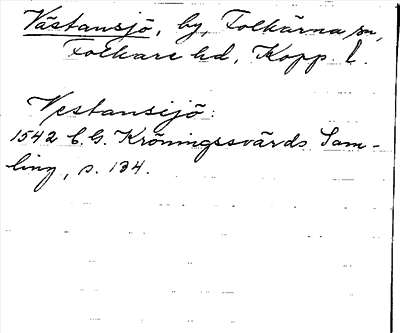 Västansjö, by, Folkärna sn,
Folkare hd, Kopp. l.
Vestansijö:
1542 C. G. Kröningssvärds Sam-
ling, s. 134.